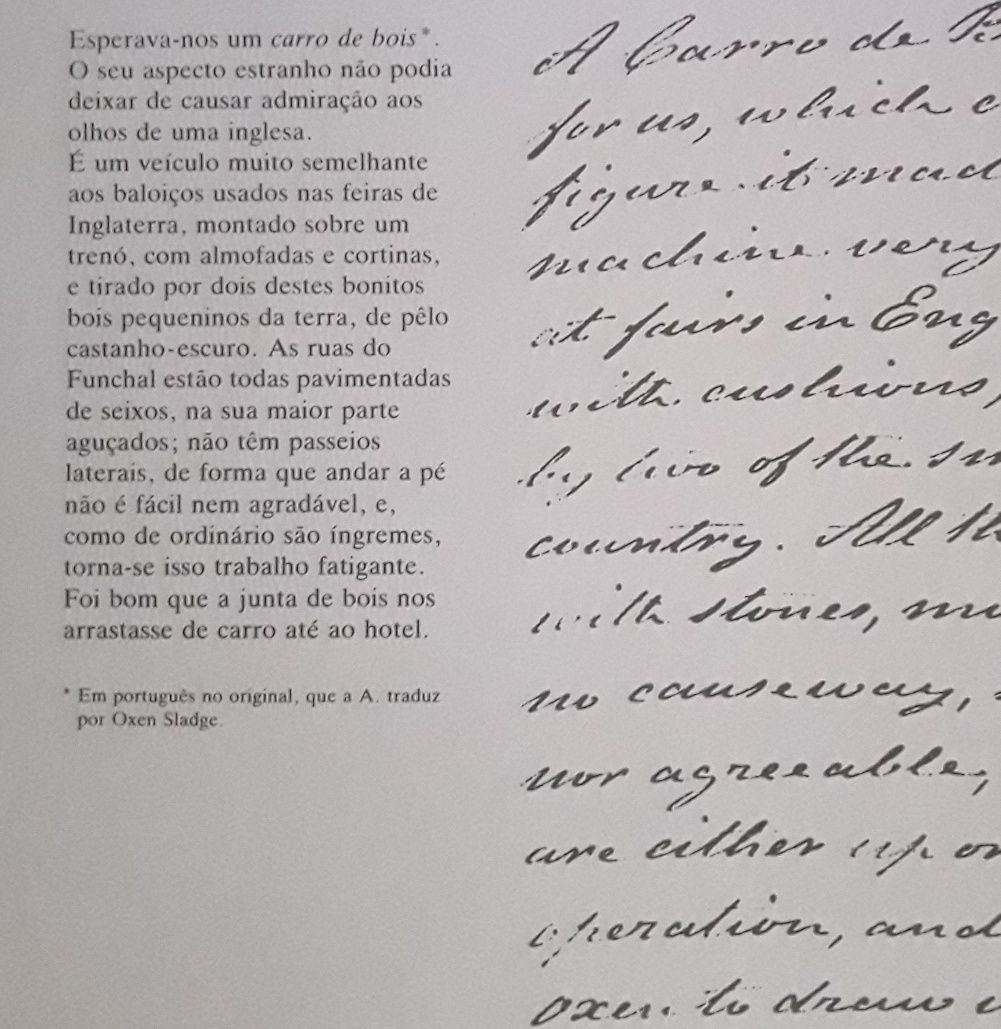 Esperava-nos um carro de bois*.
O seu aspecto estranho não podia
deixar de causar admiração aos
olhos de uma inglesa.
É um veículo muito semelhante
aos baloiços usados nas feiras de
Inglaterra, montado sobre um
trenó, com almofadas e cortinas,
e tirado por dois destes bonitos
bois pequeninos da terra, de pêlo
castanho-escuro. As ruas do
Funchal estão todas pavimentadas
de seixos, na sua maior parte
aguçados; não têm passeios
laterais, de forma que andar a pé
não é fácil nem agradável, e,
como de ordinário são íngremes,
torna-se isso trabalho fatigante.
Foi bom que a junta de bois nos
arrastasse de carro até ao hotel.
* Em português no original, que a A. traduz
por Oxen Sladge.
A Carro de
for us, which
figure it mad
machine very
at fairs in Eng
with cushions,
by two of the sm
country. All th
with stones, mo
no causeway,
nor agreeable,
are either up or
operation, and
oxen to draw